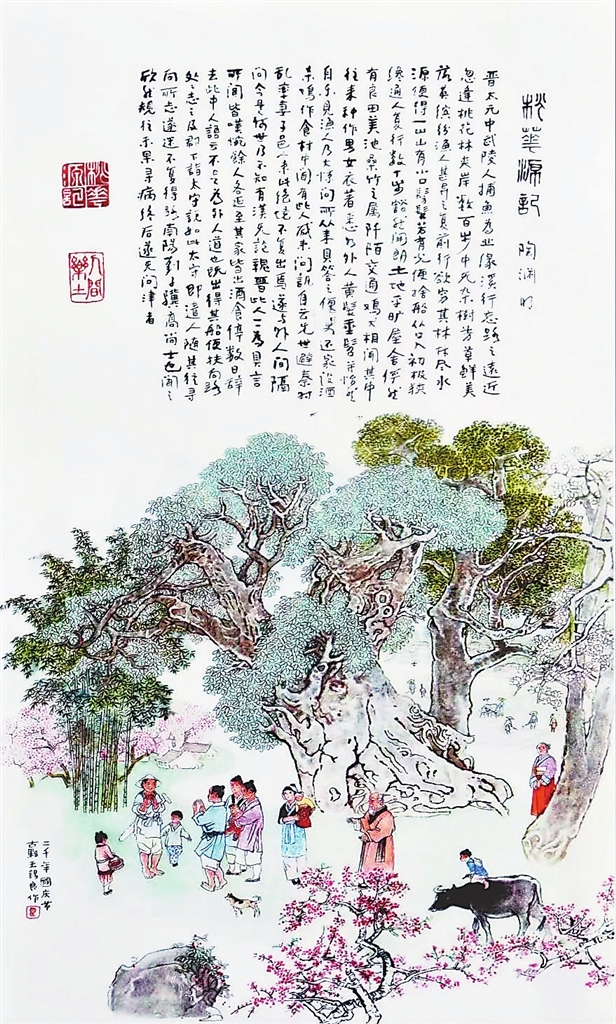 桃華源記 陶渊明
晋太元中武陵人捕魚为业缘溪行忘路之遠近
忽逢桃花林夹岸数百步中无杂樹芳草鲜美
落英缤纷渔人甚异之复前行欲穷其林林尽水
源便得一山山有小口髣髴若有光便捨船从口入初极狭
纔通人复行数十步豁然開朗土地平旷屋舍俨然
有良田美池桑竹之属阡陌交通鸡犬相闻其中
往来种作男女衣著悉如外人黄髮垂髫并怡然
自乐見渔人乃大惊问所从来具答之便要还家設酒
杀鸡作食村中闻有此人咸来问訊自云先世避秦时
乱率妻子邑人来此绝境不复出焉遂与外人间隔
问今是何世乃不知有漢无论魏晋此人一一为具言
所闻皆嘆惋餘人各延至其家皆出酒食停数日辞
去此中人語云不足为外人道也既出得其船便扶向路
处处志之及郡下詣太守说如此太守即遣人随其往寻
向所志遂迷不复得路南陽刘子驥高尚士也闻之
欣然规往未果寻病终后遂无问津者
桃華源記
人間樂土
二千年國庆节
古黟王锡良作